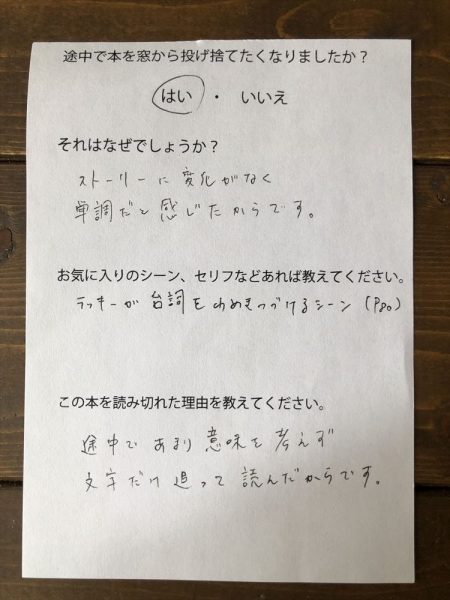 途中で本を窓から投げ捨てたくなりましたか？
はい ・ いいえ
それはなぜでしょうか？
ストーリーに変化がなく
単調だと感じたからです。
お気に入りのシーン、セリフなどあれば教えてください。
ラッキーが台詞をわめきつづけるシーン（P80）
この本を読み切れた理由を教えてください。
途中であまり意味を考えず
文字だけ追って読んだからです。